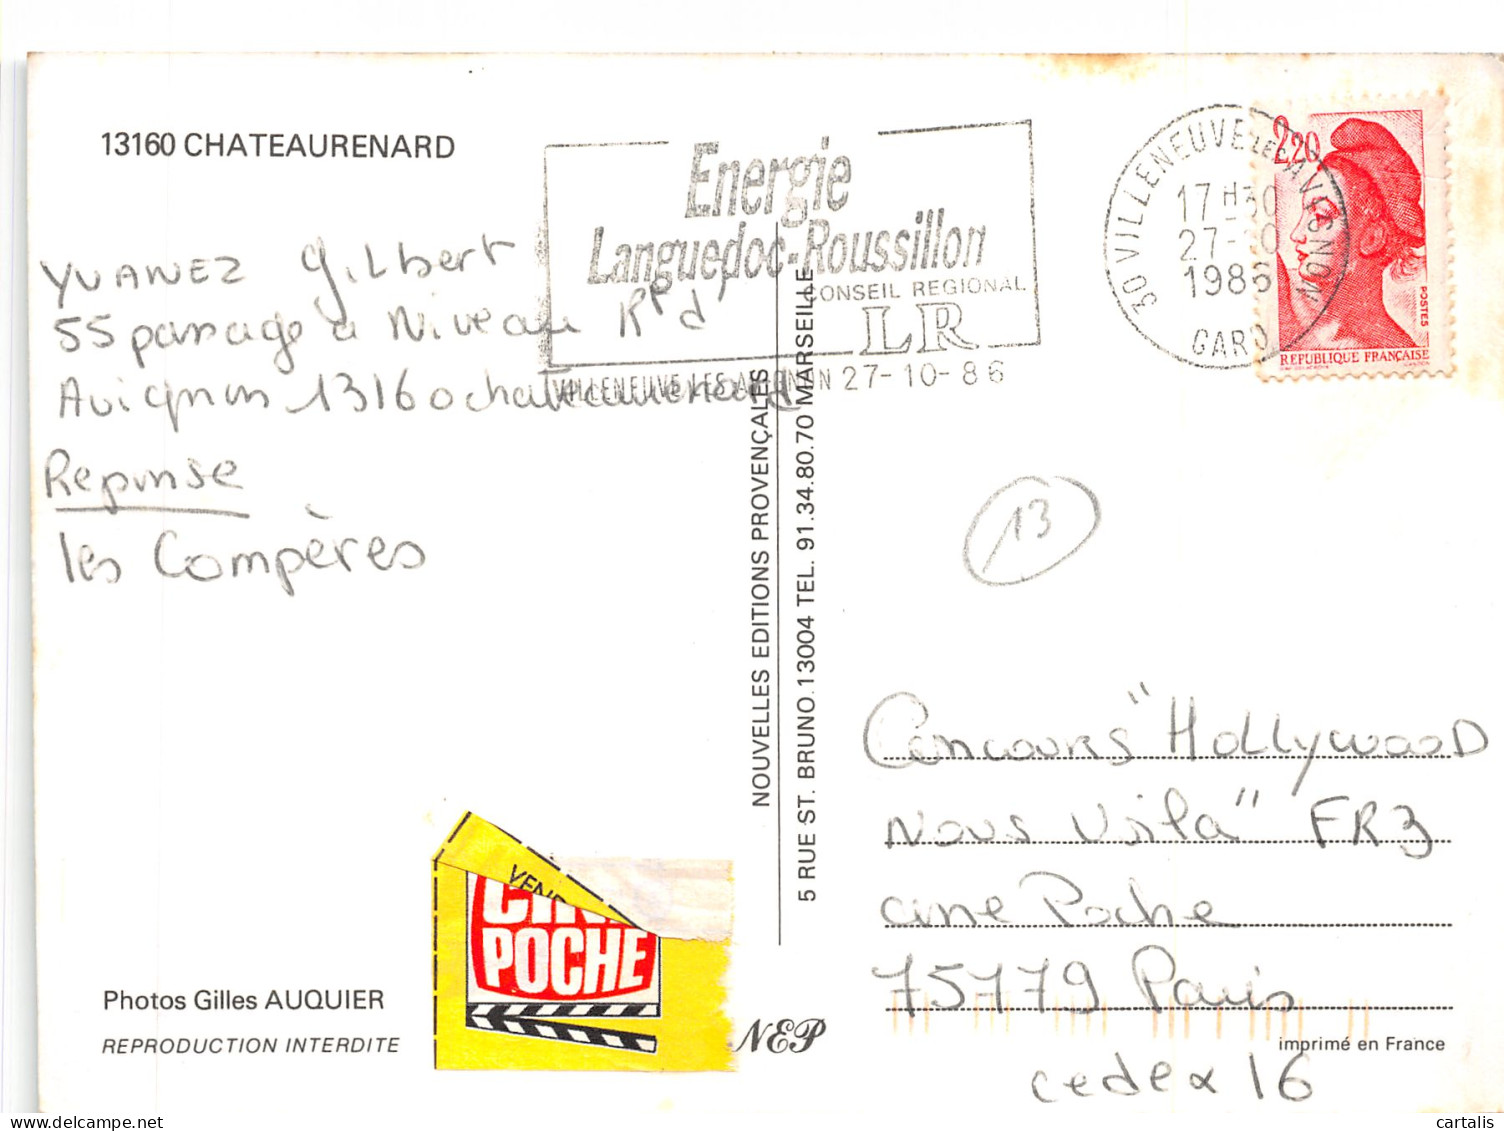 13160 CHATEAURENARD
YVANEZ Gilbert
55 passage à Niveau Rte d'
Avignon 13160 chateaurenard
Reponse
les Compères
Photos Gilles AUQUIER
REPRODUCTION INTERDITE
CINE
POCHE
NEP
NOUVELLES EDITIONS PROVENÇALES
5 RUE ST. BRUNO.13004 TEL. 91.34.80.70 MARSEILLE
Energie
Languedoc-Roussillon
CONSEIL REGIONAL
LR
VILLENEUVE LES AVIGNON 27-10-86
30 VILLENEUVE LES AVIGNON
17H30
27-10
1986
GARD
2,20
POSTES
REPUBLIQUE FRANÇAISE
13
Concours "Hollywood
nous voila" FR3
cine Poche
75779 Paris
cedex 16
imprimé en France
cartalis
www.delcampe.net